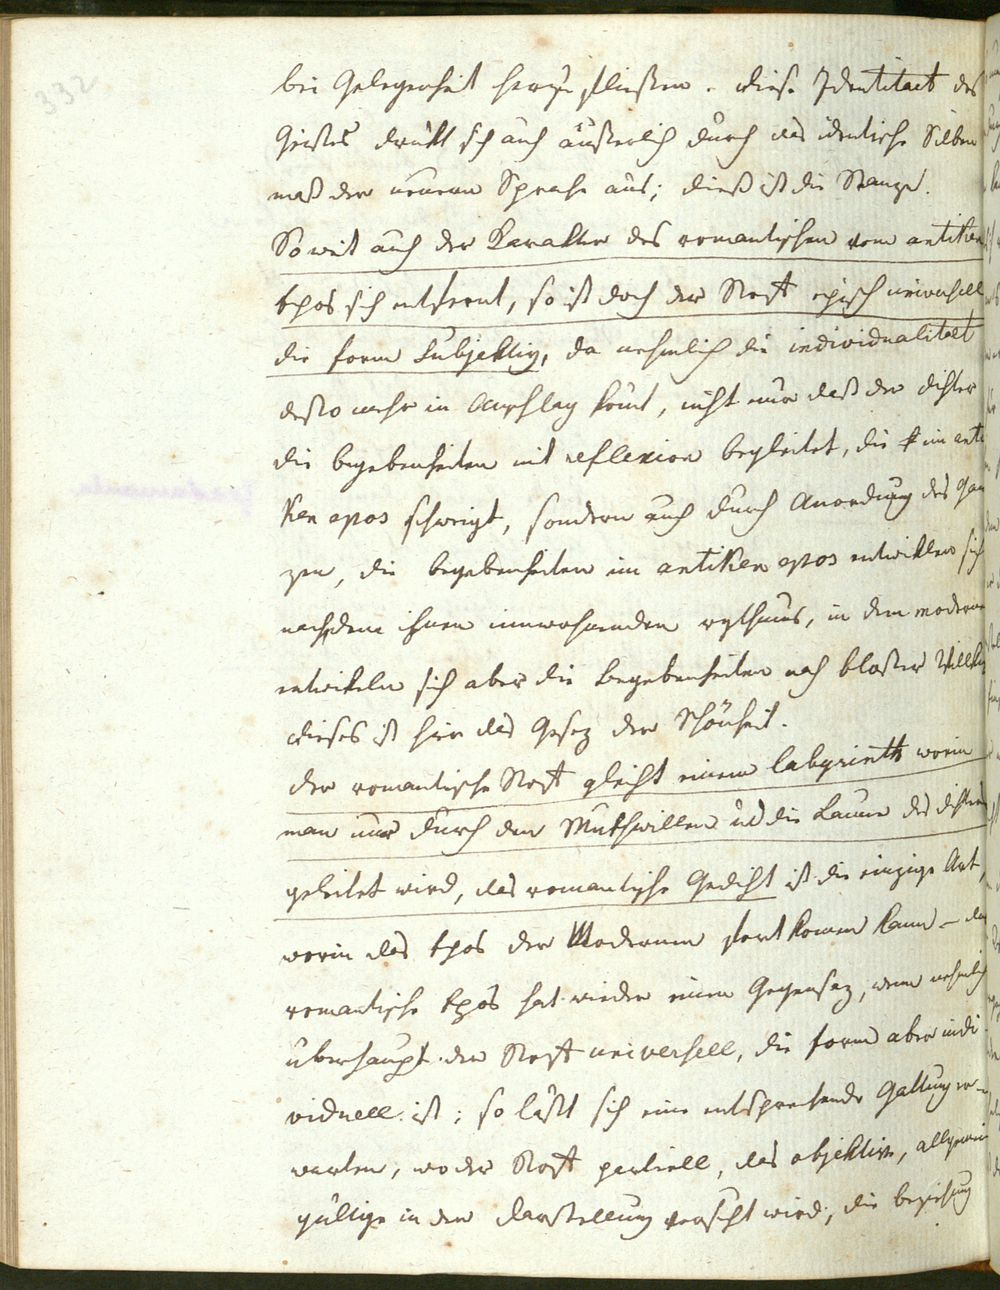 332
bei Gelegenheit herzu fließen. Diese Identitaet des
Geistes drükt sich auch äußerlich durch das identische Silben
maß der neuern Sprache aus; dieß ist die Stanze.
So weit auch der Karakter des romantischen vom antiken
Epos sich entfernt, so ist doch der Stoff episch universell
die form Subjektiv, da nehmlich die individualitaet
desto mehr in Anschlag kömt, nicht nur daß der dichter
die begebenheiten mit reflexion begleitet, die im anti
ken epos schweigt, sondern auch durch Anordnung des Gan
zen, die begebenheiten im antiken epos entwiklen sich
nach dem ihnen innwohnenden rythmus, in dem modernen
entwikeln sich aber die Begebenheiten nach bloßer Willkühr
dieses ist hier das Gesez der Schönheit.
der romantische Stoff gleicht einem labyrinth worin
man nur durch den Muthwillen u die Laune des dichters
geleitet wird, das romantische Gedicht ist die einzige Art,
worin das Epos der Modernen fortkomen kann – das
romantische Epos hat wieder einen Gegensaz, wenn nehmlich
überhaupt der Stoff universell, die form aber indi
viduell ist; so läßt sich eine entsprechende Gattung er-
warten, wo der Stoff partiell, das objektive, allgemein
gültige in der darstellung versucht wird, die beziehung